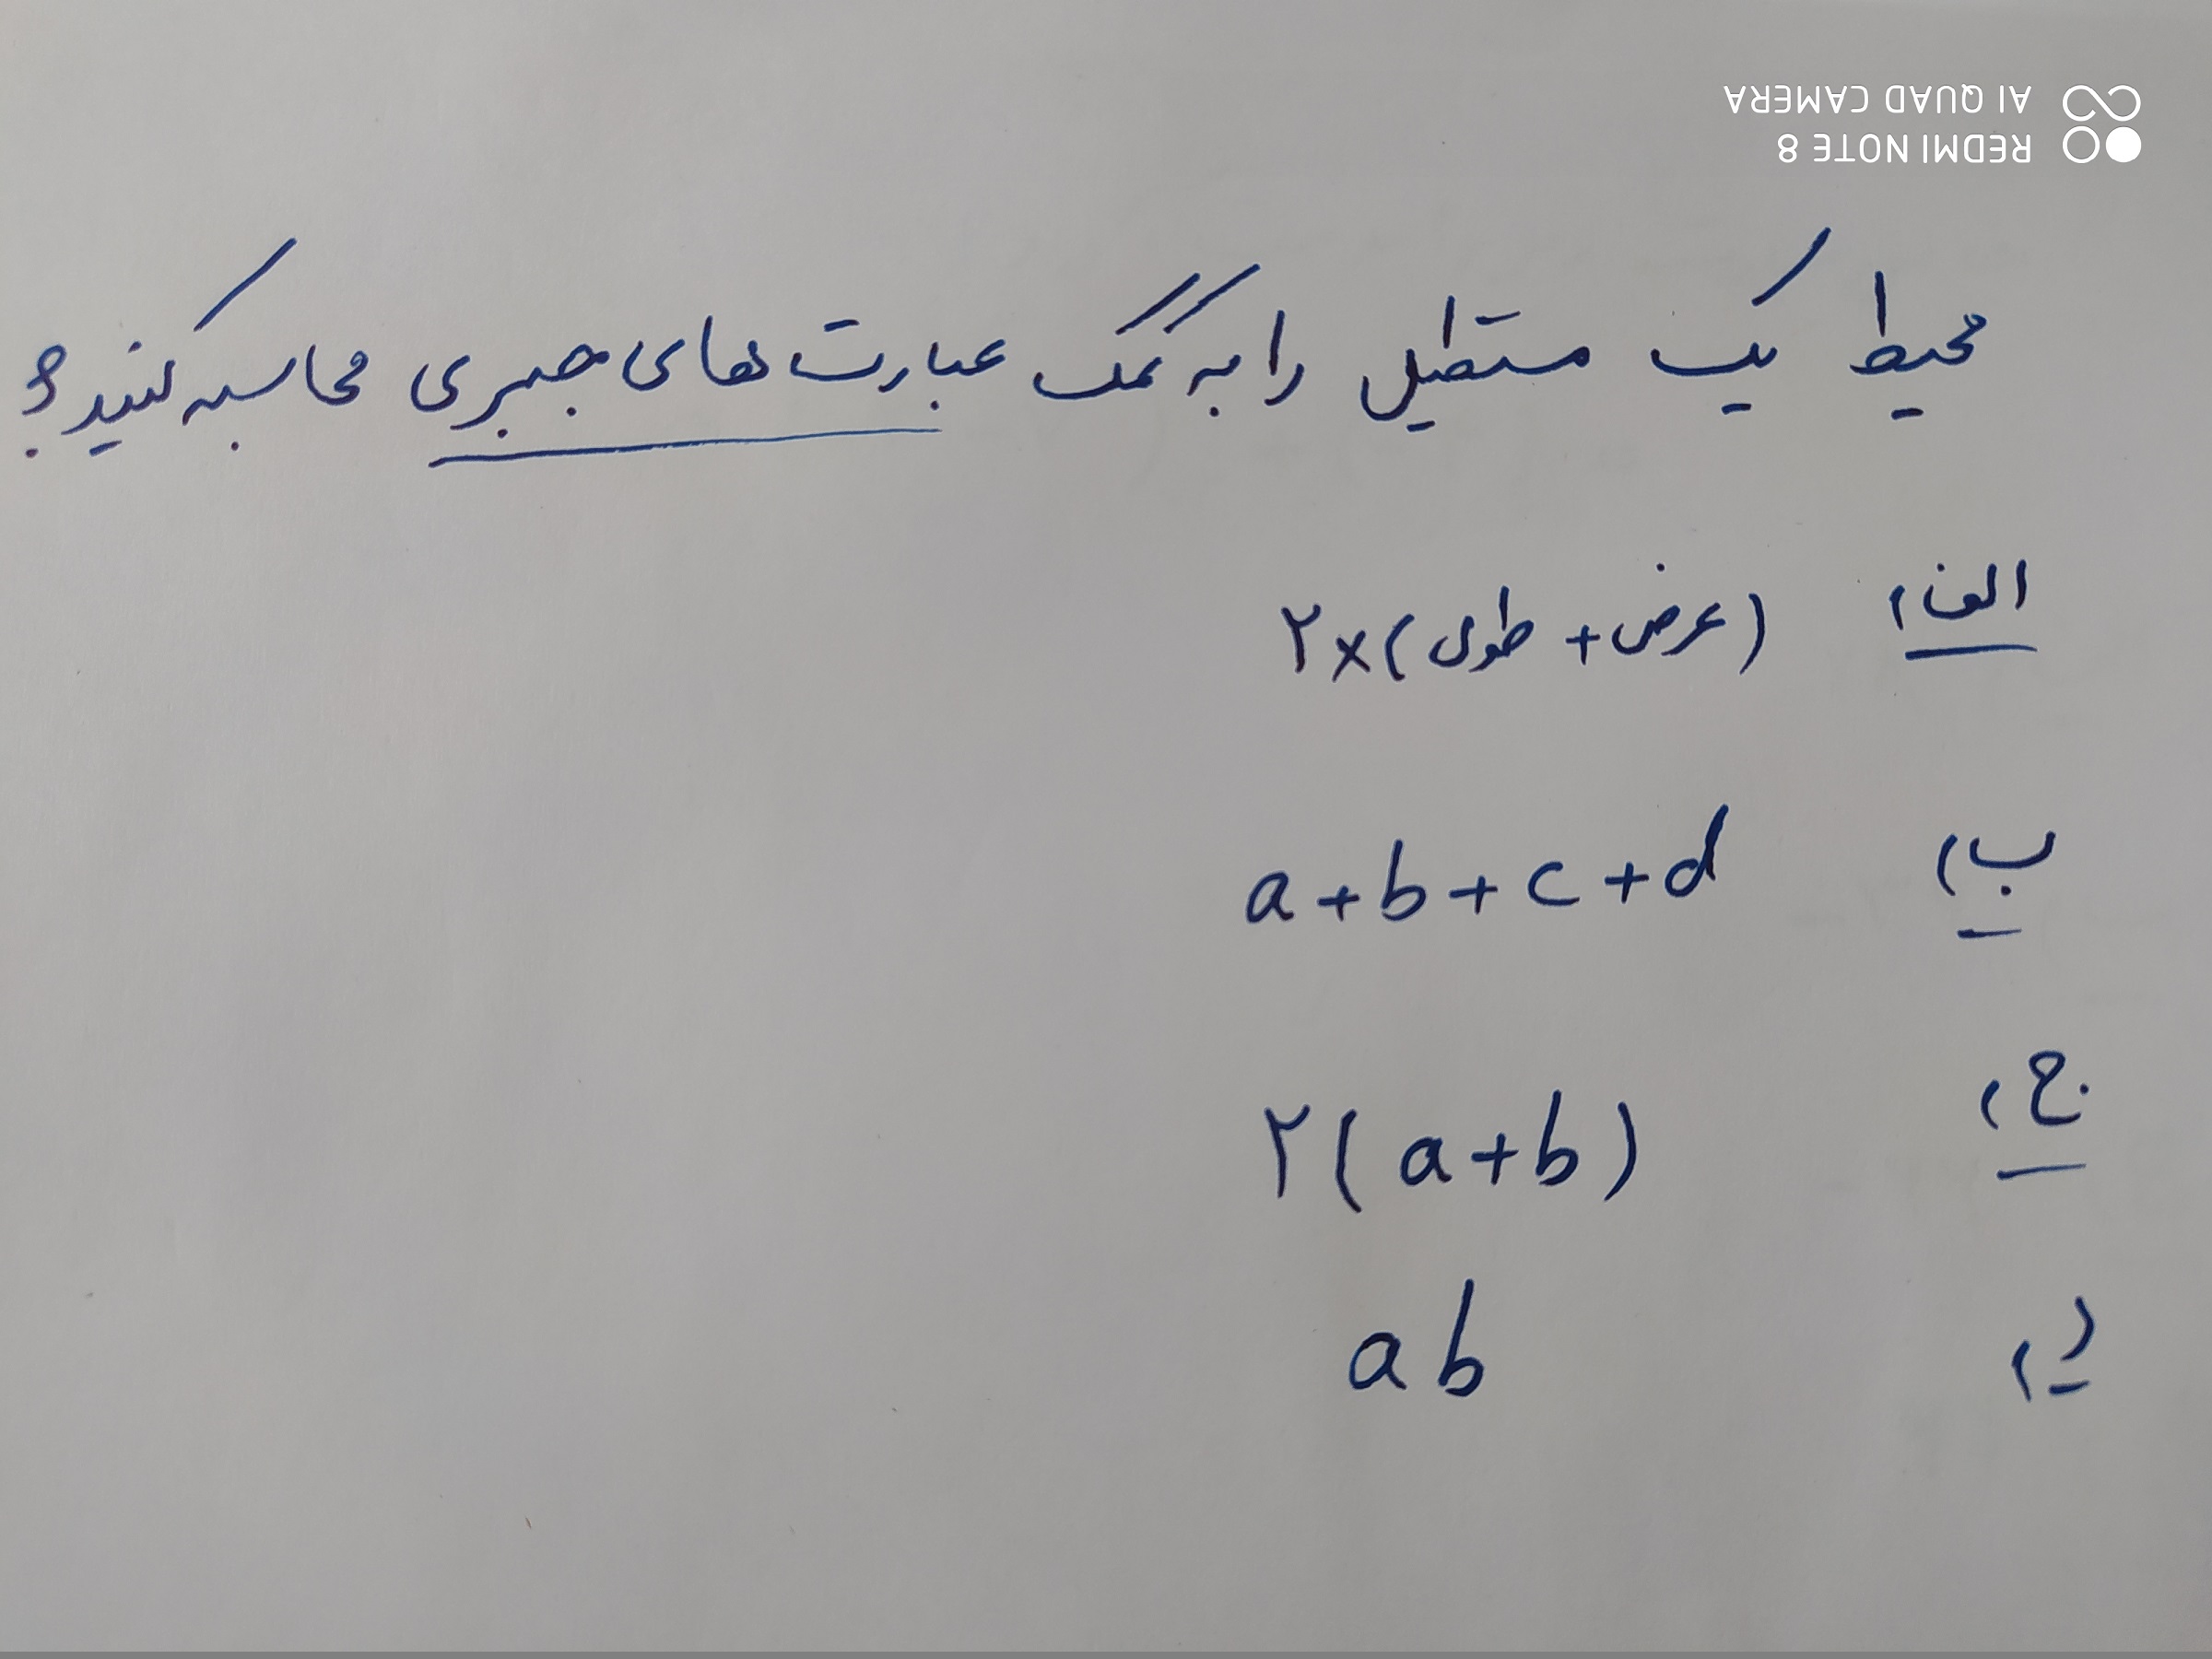 REDMI NOTE 8
AI QUAD CAMERA
محیط یک مستطیل را به کمک عبارت‌های جبری محاسبه کنید؟
الف) ۲×(طول + عرض)
ب) a+b+c+d
ج) ۲(a+b)
د) ab